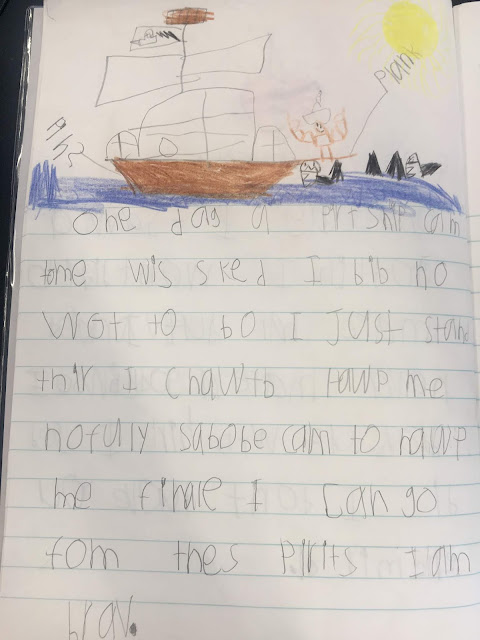 Plank
One day a prtship cam
tome wis sked I bib no
wot to bo I Just stand
thir I chawtb hawp me
hofuly sabobe cam to hawp
me finale I can go
fom thes Pirits I am
brav.